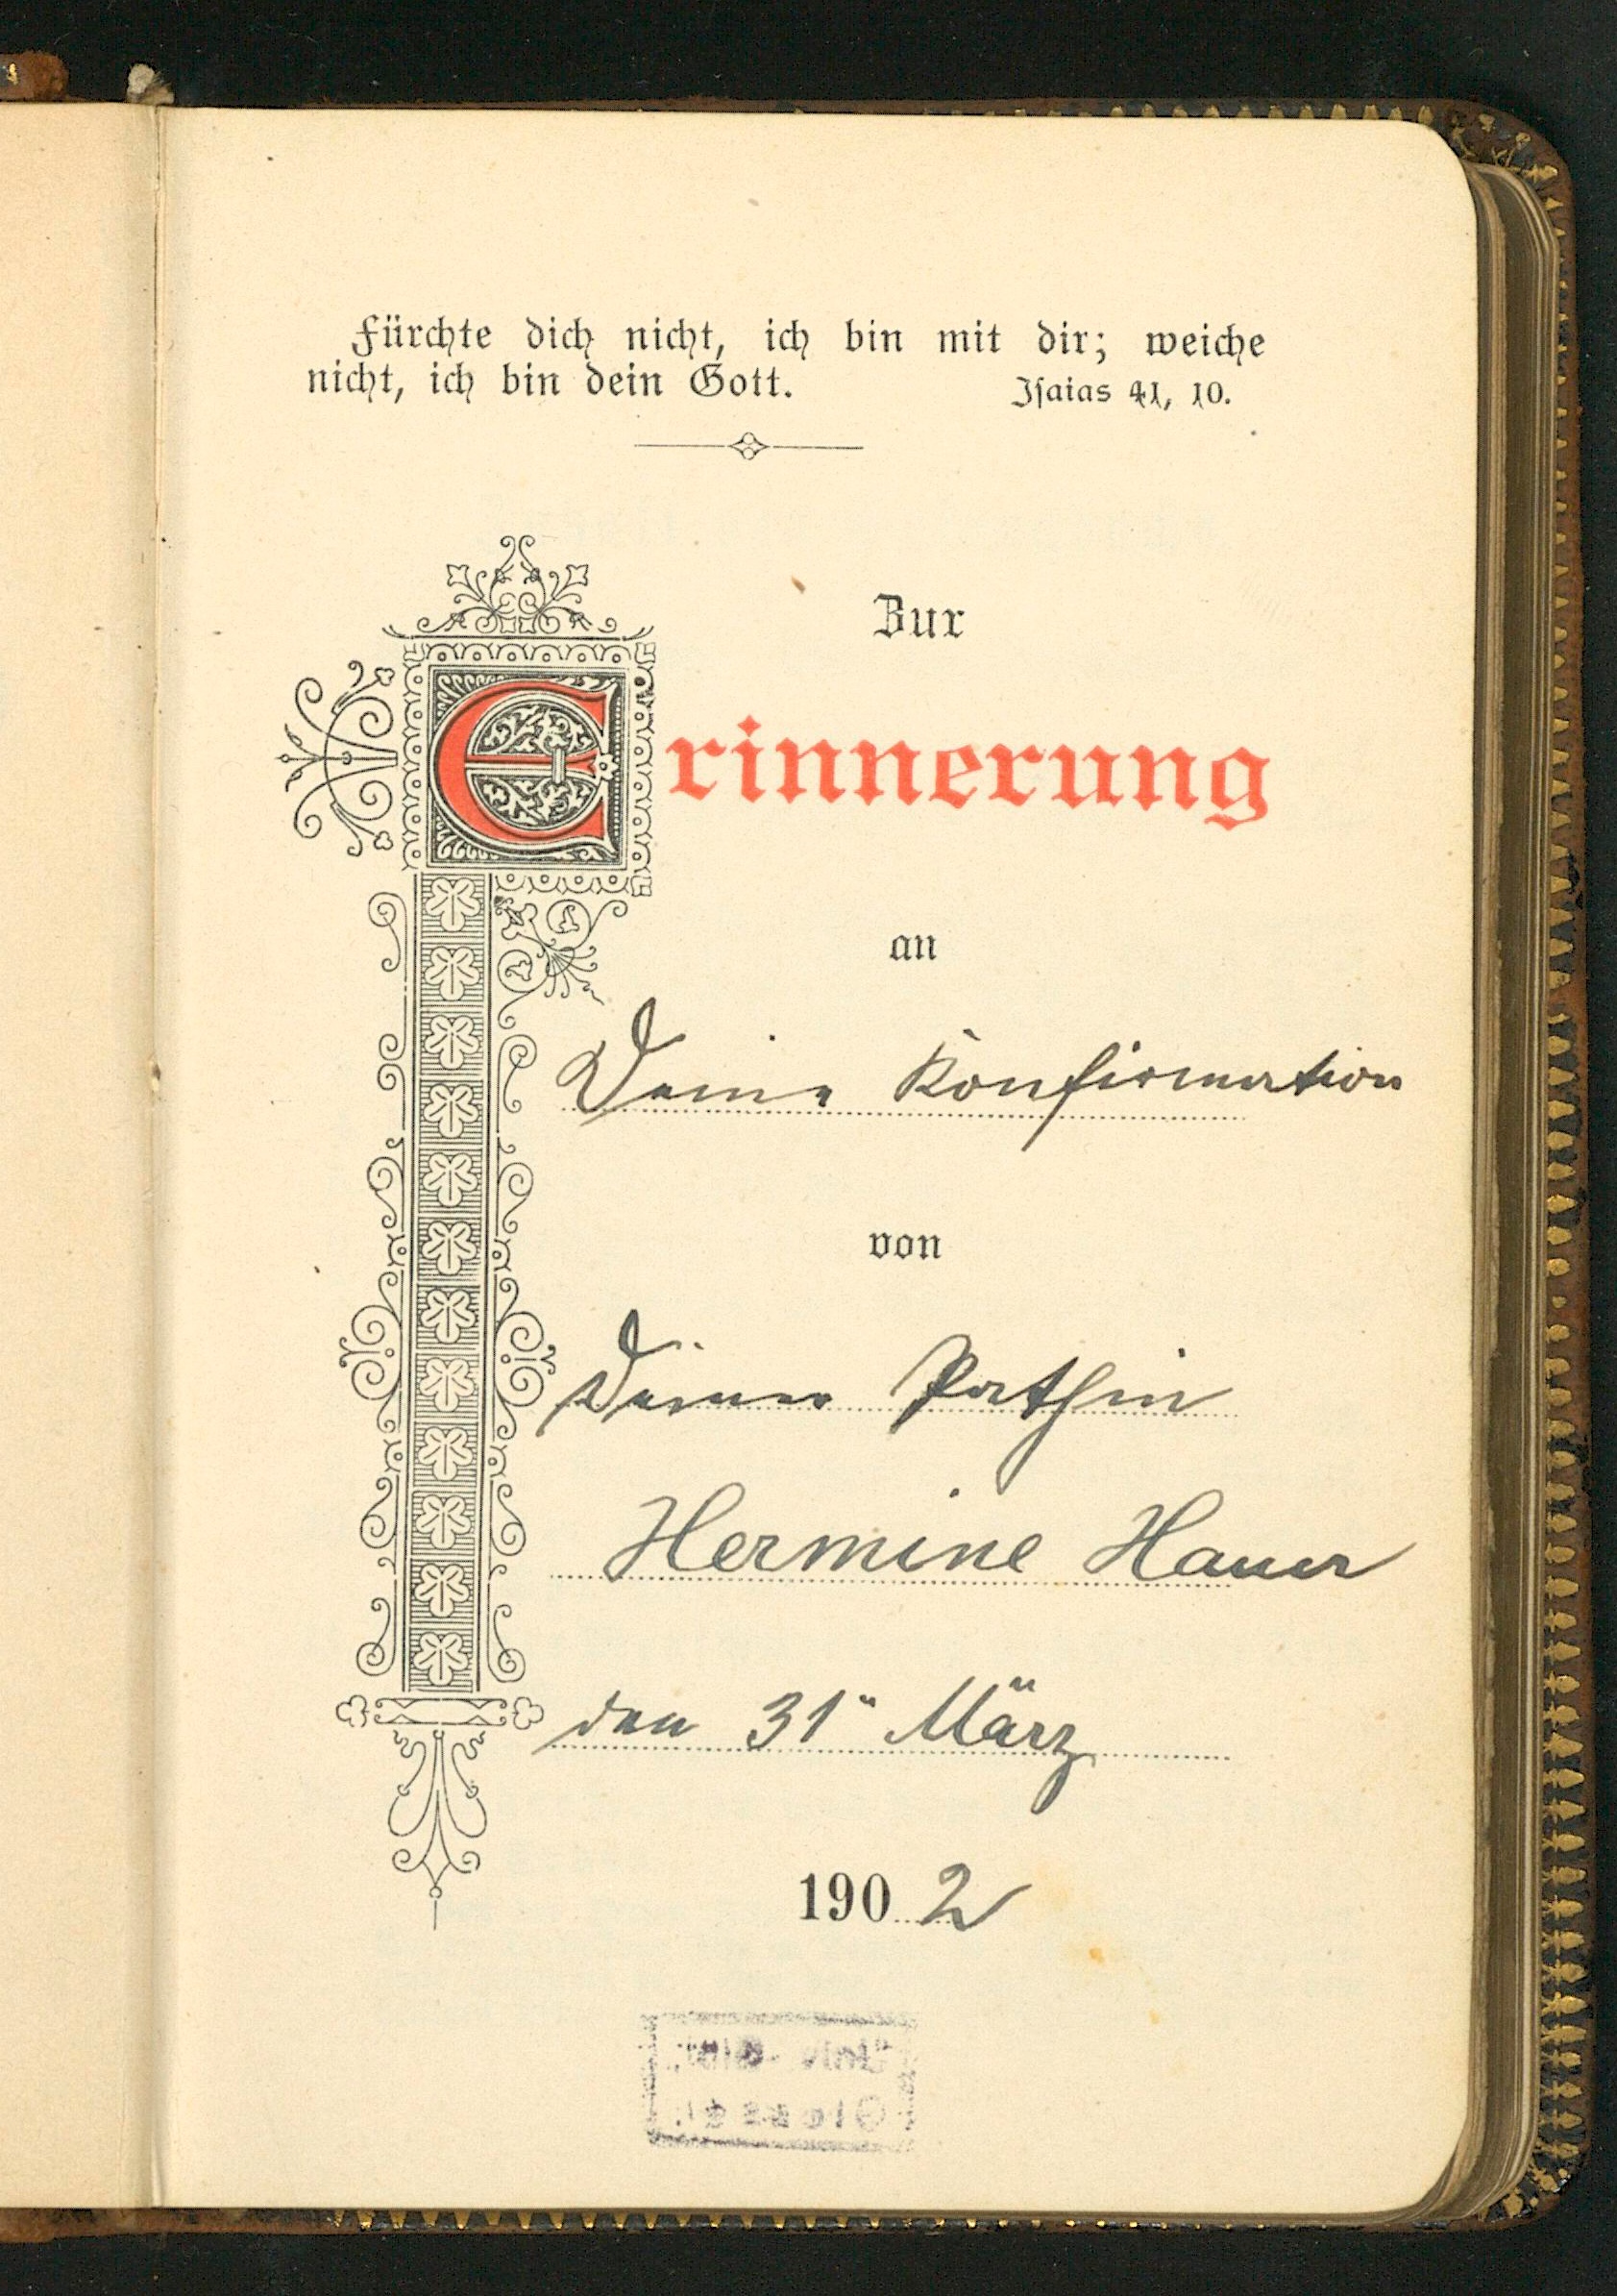 Fürchte dich nicht, ich bin mit dir; weiche
nicht, ich bin dein Gott.
Isaias 41, 10.
Zur
Erinnerung
an
Deine Konfirmation
von
Deiner Pathin
Hermine Hauer
den 31" März
1902
Univ.-Bibl.
Giessen